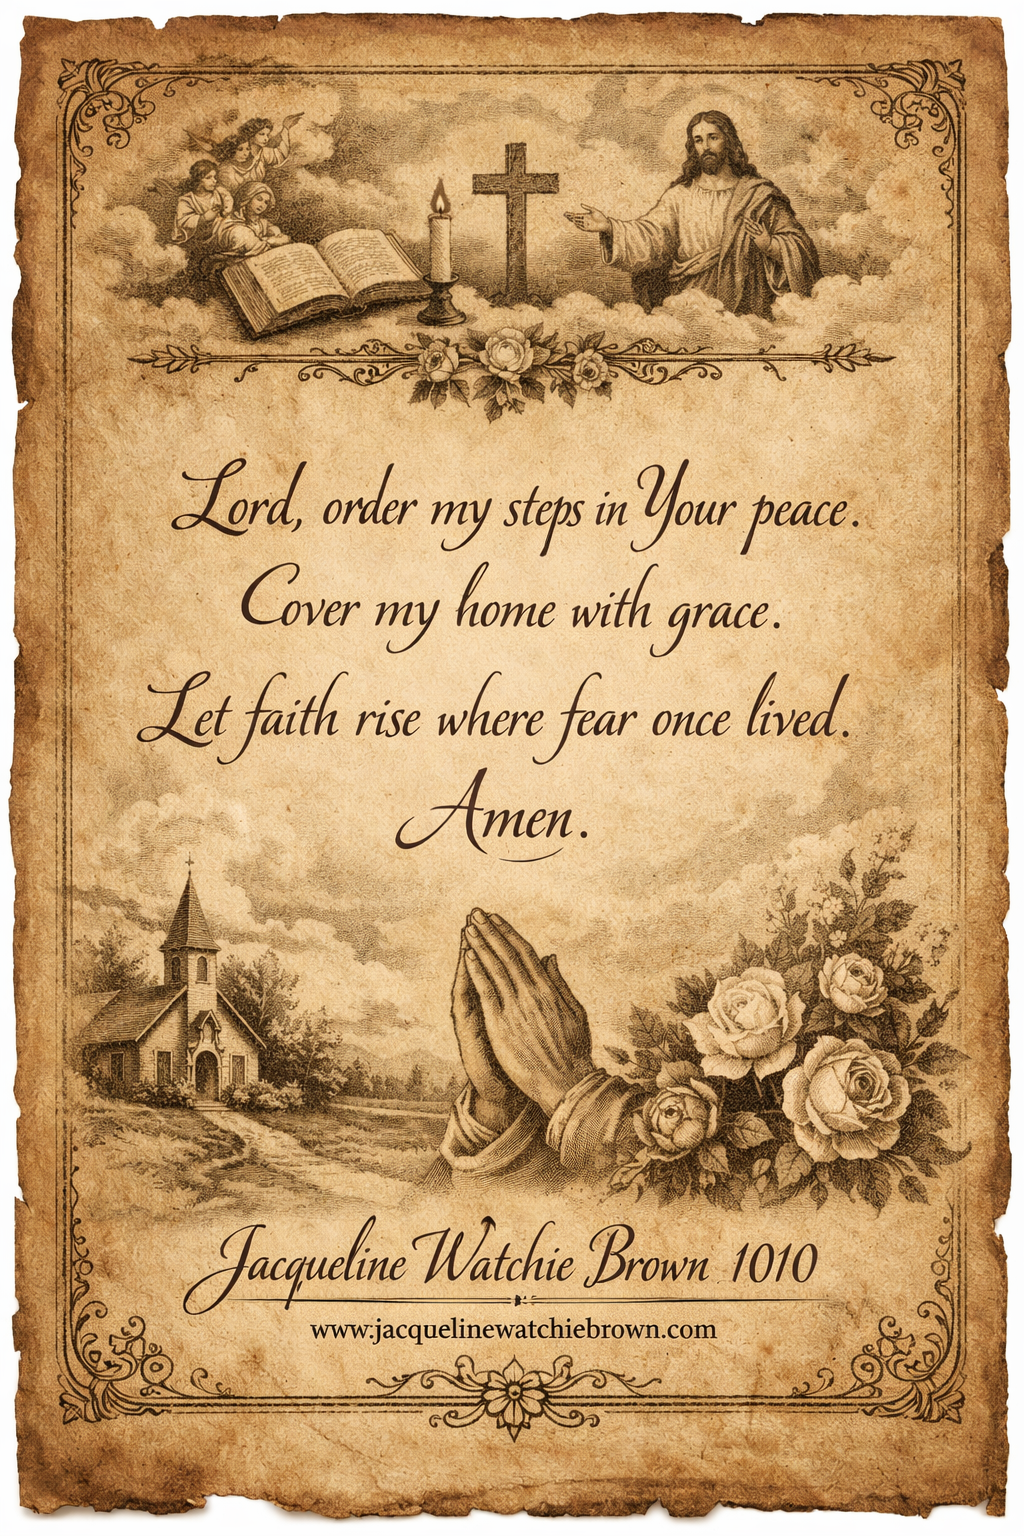 Lord, order my steps in Your peace.
Cover my home with grace.
Let faith rise where fear once lived.
Amen.
Jacqueline Watchie Brown 1010
www.jacquelinewatchiebrown.com